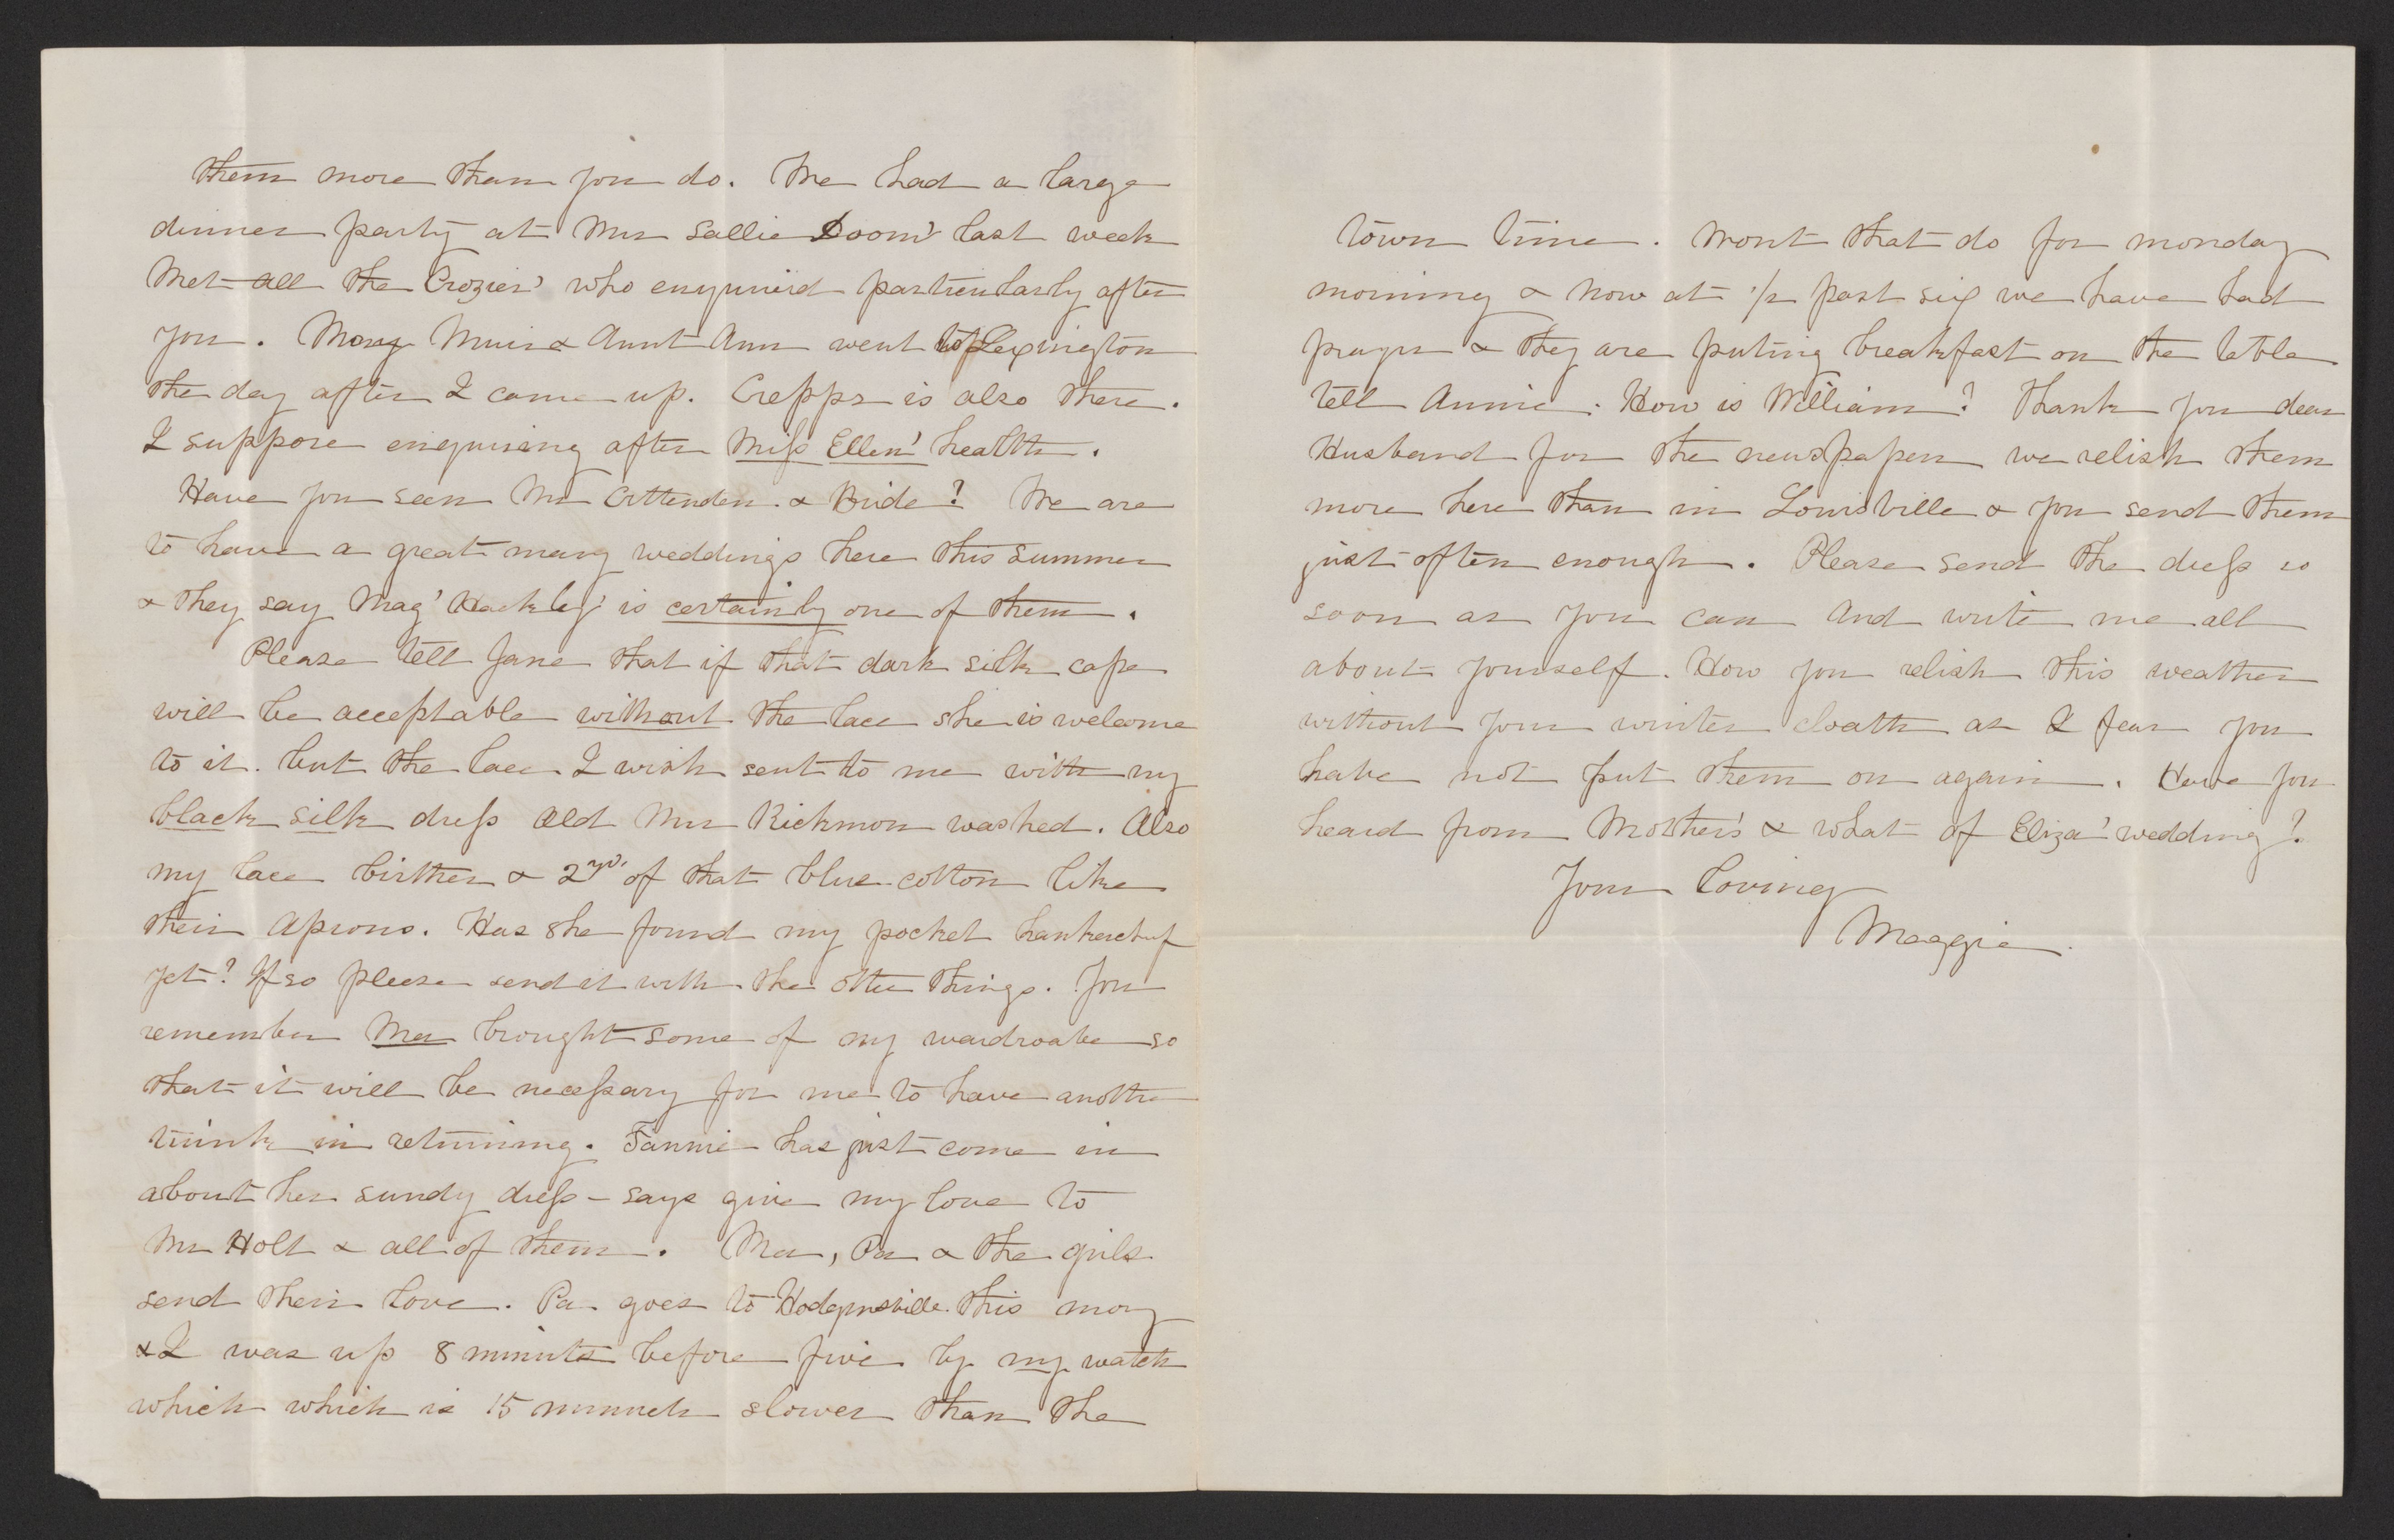 them more than you do. We had a large
dinner party at Mrs Sallie Doom's last week
Met all the Crozier's who enquired particularly after
you. Mary Muir & Aunt Ann went to Lexington
the day after I came up. Crepps is also there.
I suppose enquiring after Miss Ellen's health.
Have you seen Mr Crittenden & Bride? We are
to have a great many weddings here this summer
& they say Mag' Hackley' is certainly one of them.
Please tell Jane that if that dark silk cape
will be acceptable without the lace she is welcome
to it. but the lace I wish sent to me with my
black silk dress old Mrs Rickmon washed. Also
my lace birther & 2 yds. of that blue cotton like
their aprons. Has she found my pocket hankerchuf
yet? If so please send it with the other things. You
remember Ma brought some of my wardroabe so
that it will be necessary for me to have another
trunk in returning. Fannie has just come in
about her sundy dress - says give my love to
Mr Holt & all of them. Ma, Pa & the girls
send their love. Pa goes to Hodgensville this morng
& I was up 8 minuts before five by my watch
which which is 15 minuets slower than the
town time. Wont that do for monday
morning & now at 1/2 past six we have had
prayer & they are puting breakfast on the table
tell Annie. How is William? Thank you dear
Husband for the newspapers we relish them
more here than in Louisville & you send them
just often enough. Please send the dress so
soon as you can and write me all
about yourself. How you relish this weather
without your winter cloaths as I fear you
have not put them on again. Have you
heard from Mother's & what of Eliza' wedding?
Your loving
Maggie.